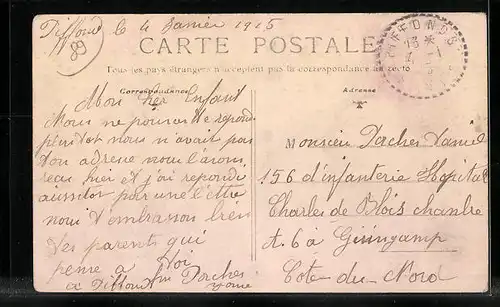 Tiffond le 4 Janvier 1915
89
CARTE POSTALE
Tous les pays étrangers n'acceptent pas la correspondance au recto
Correspondance
Adresse
Mon cher Enfant
Nous ne pouvons te repond
plus tot nous n'avait pas
ton adresse nous l'avons
recu hier et j'ai repondu
aussitot par une l'ettre
nous t'embrasson bien
Tes parents qui
pense à toi
à Tiffond
Yonne
Monsieur Porcher Daniel
156 d'infanterie Hopital
Charles de Blois chambre
n. 6 à Guingamp
Cote-du-Nord